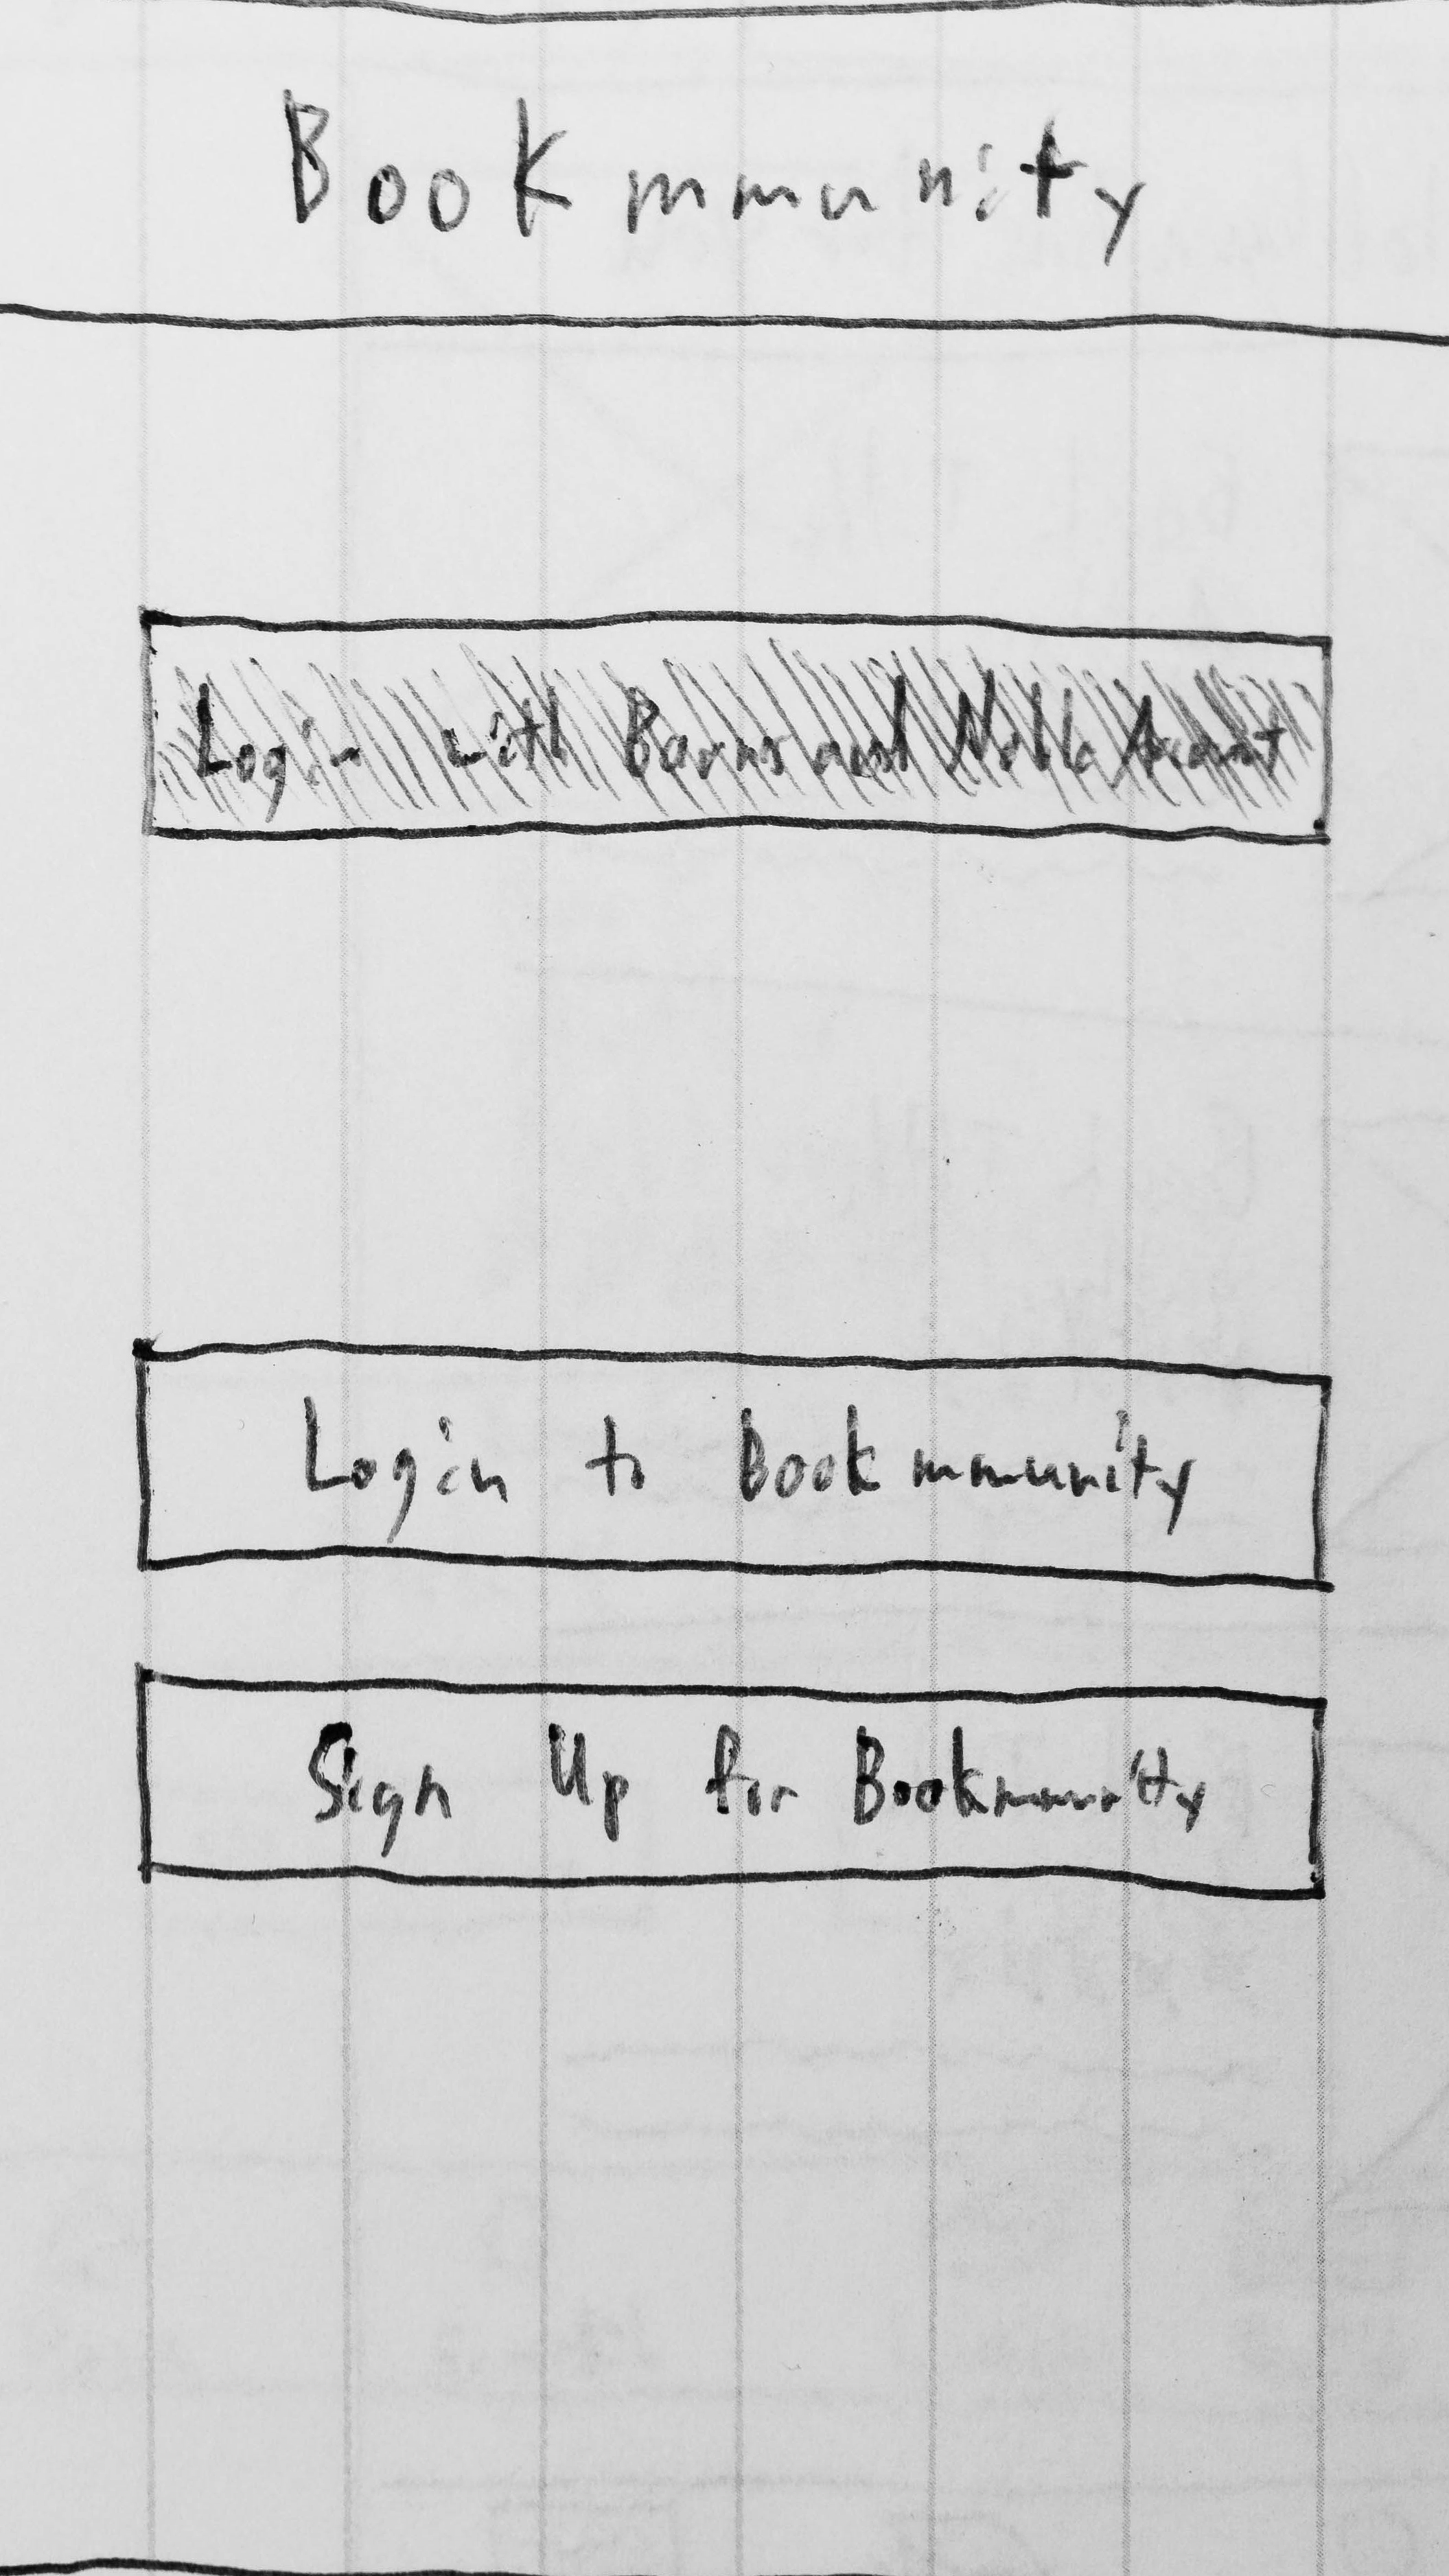 Bookmmunity
Login with Barns and Noble Account
Login to Bookmmunity
Sign Up for Bookmmunity